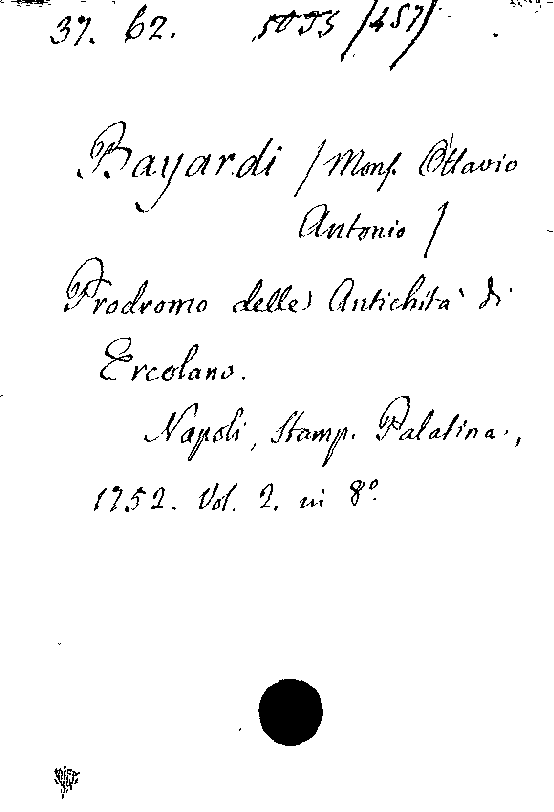 37. 62. 5093 /457/
Bayardi / Mons. Ottavio
Antonio /
Prodromo delle Antichità di
Ercolano.
Napoli, Stamp. Palatina.,
1752. Vol. 2. in 8º